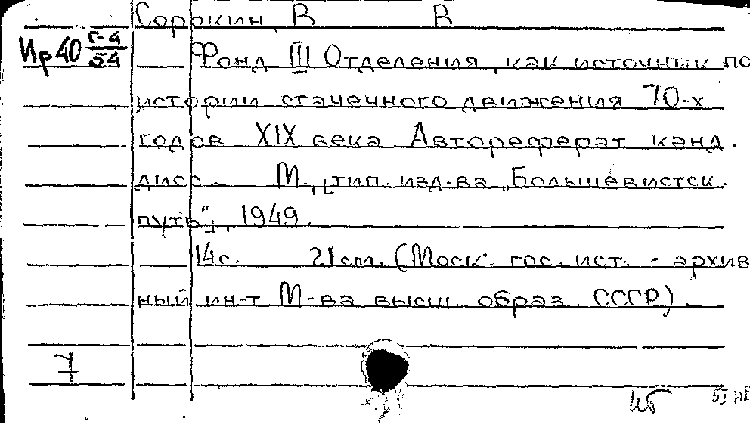 Сорокин, В В
Ир40 Г-4/54 Фонд III Отделения, как источник по
истории стачечного движения 70-х
годов XIX века Автореферат канд.
дисс. М., [тип. изд-ва „Большевистск.
путь"], 1949.
14с. 21см. (Моск. гос. ист. - архив
ный ин-т М-ва высш образ СССР).
7